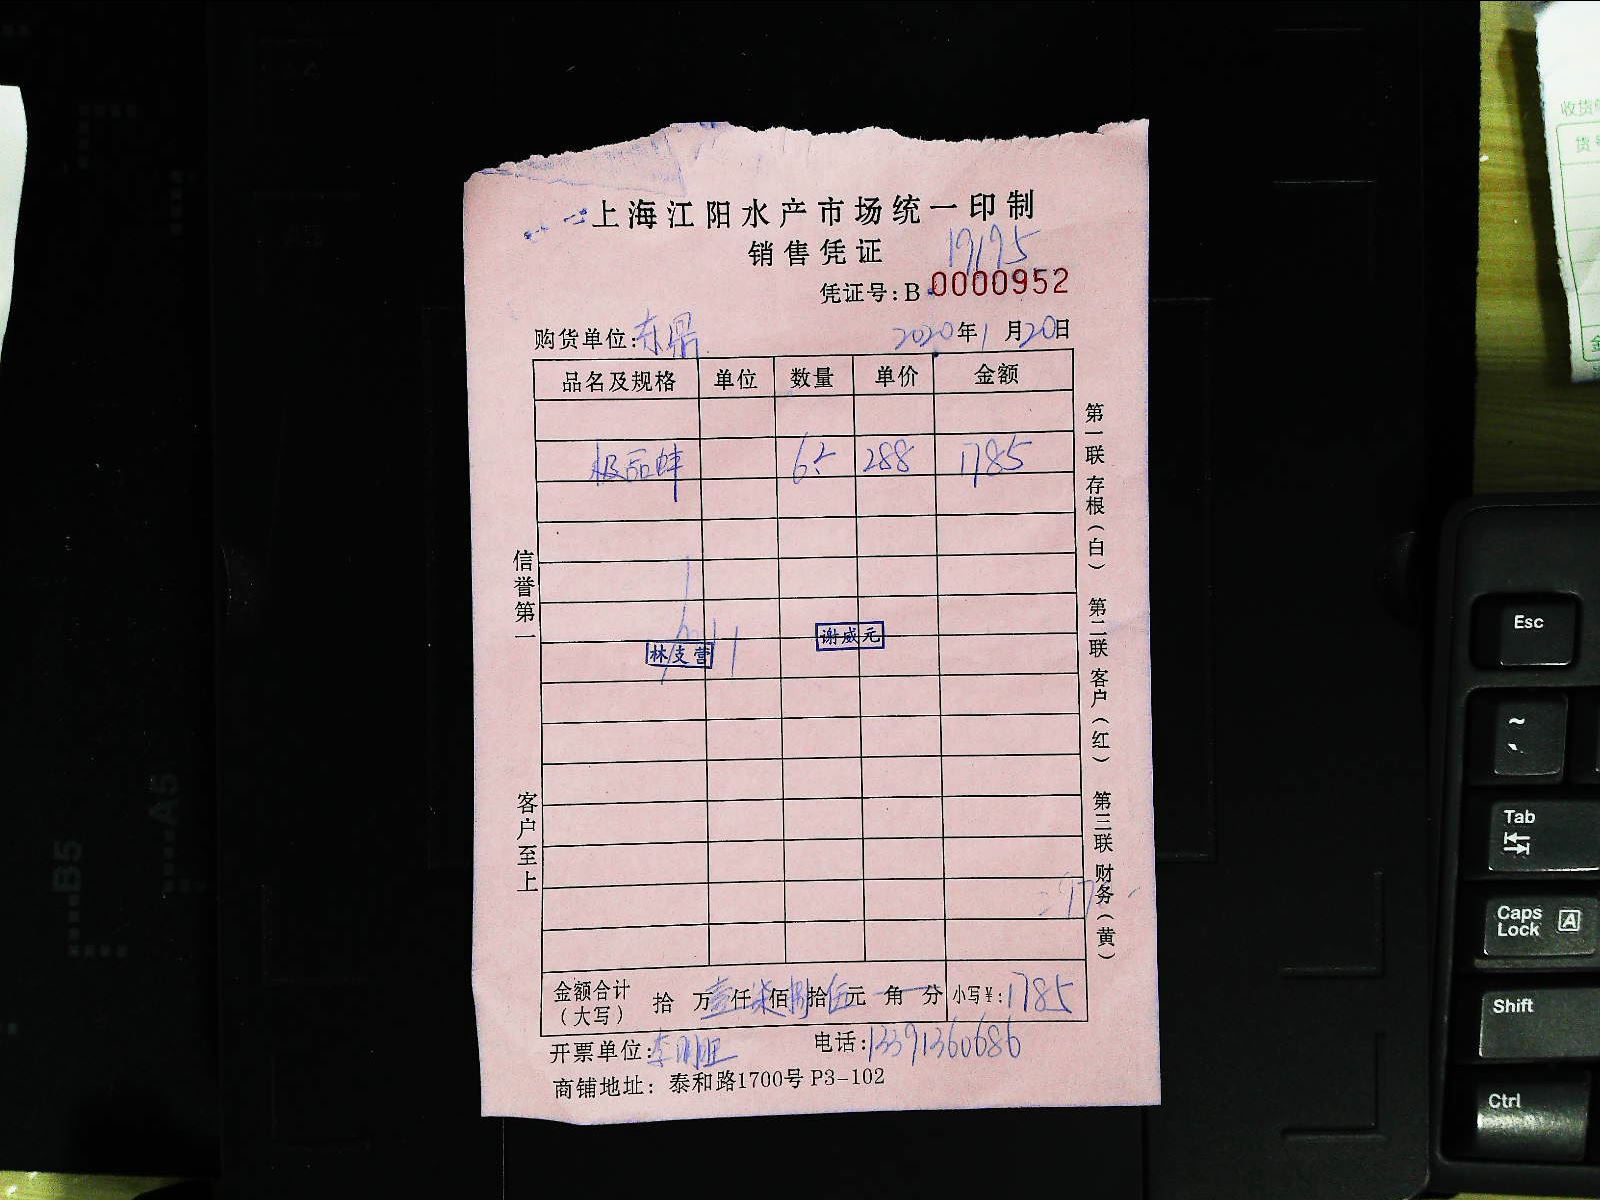 上海江阳水产市场统一印制
销售凭证
19195
凭证号:B 0000952
购货单位:东鼎 2020年1月20日
品名及规格 单位 数量 单价 金额
极品蚌 288 1785
林支营 谢威元
信誉第一
客户至上
第一联 存根(白)
第二联 客户(红)
第三联 财务(黄)
金额合计(大写) 拾 万壹仟柒佰捌拾伍元 角 分 小写¥:1785
开票单位:李明旺 电话:13391360686
商铺地址: 泰和路1700号 P3-102
收货
货号
金
B5
A5
Esc
~
`
Tab
Caps Lock A
Shift
Ctrl